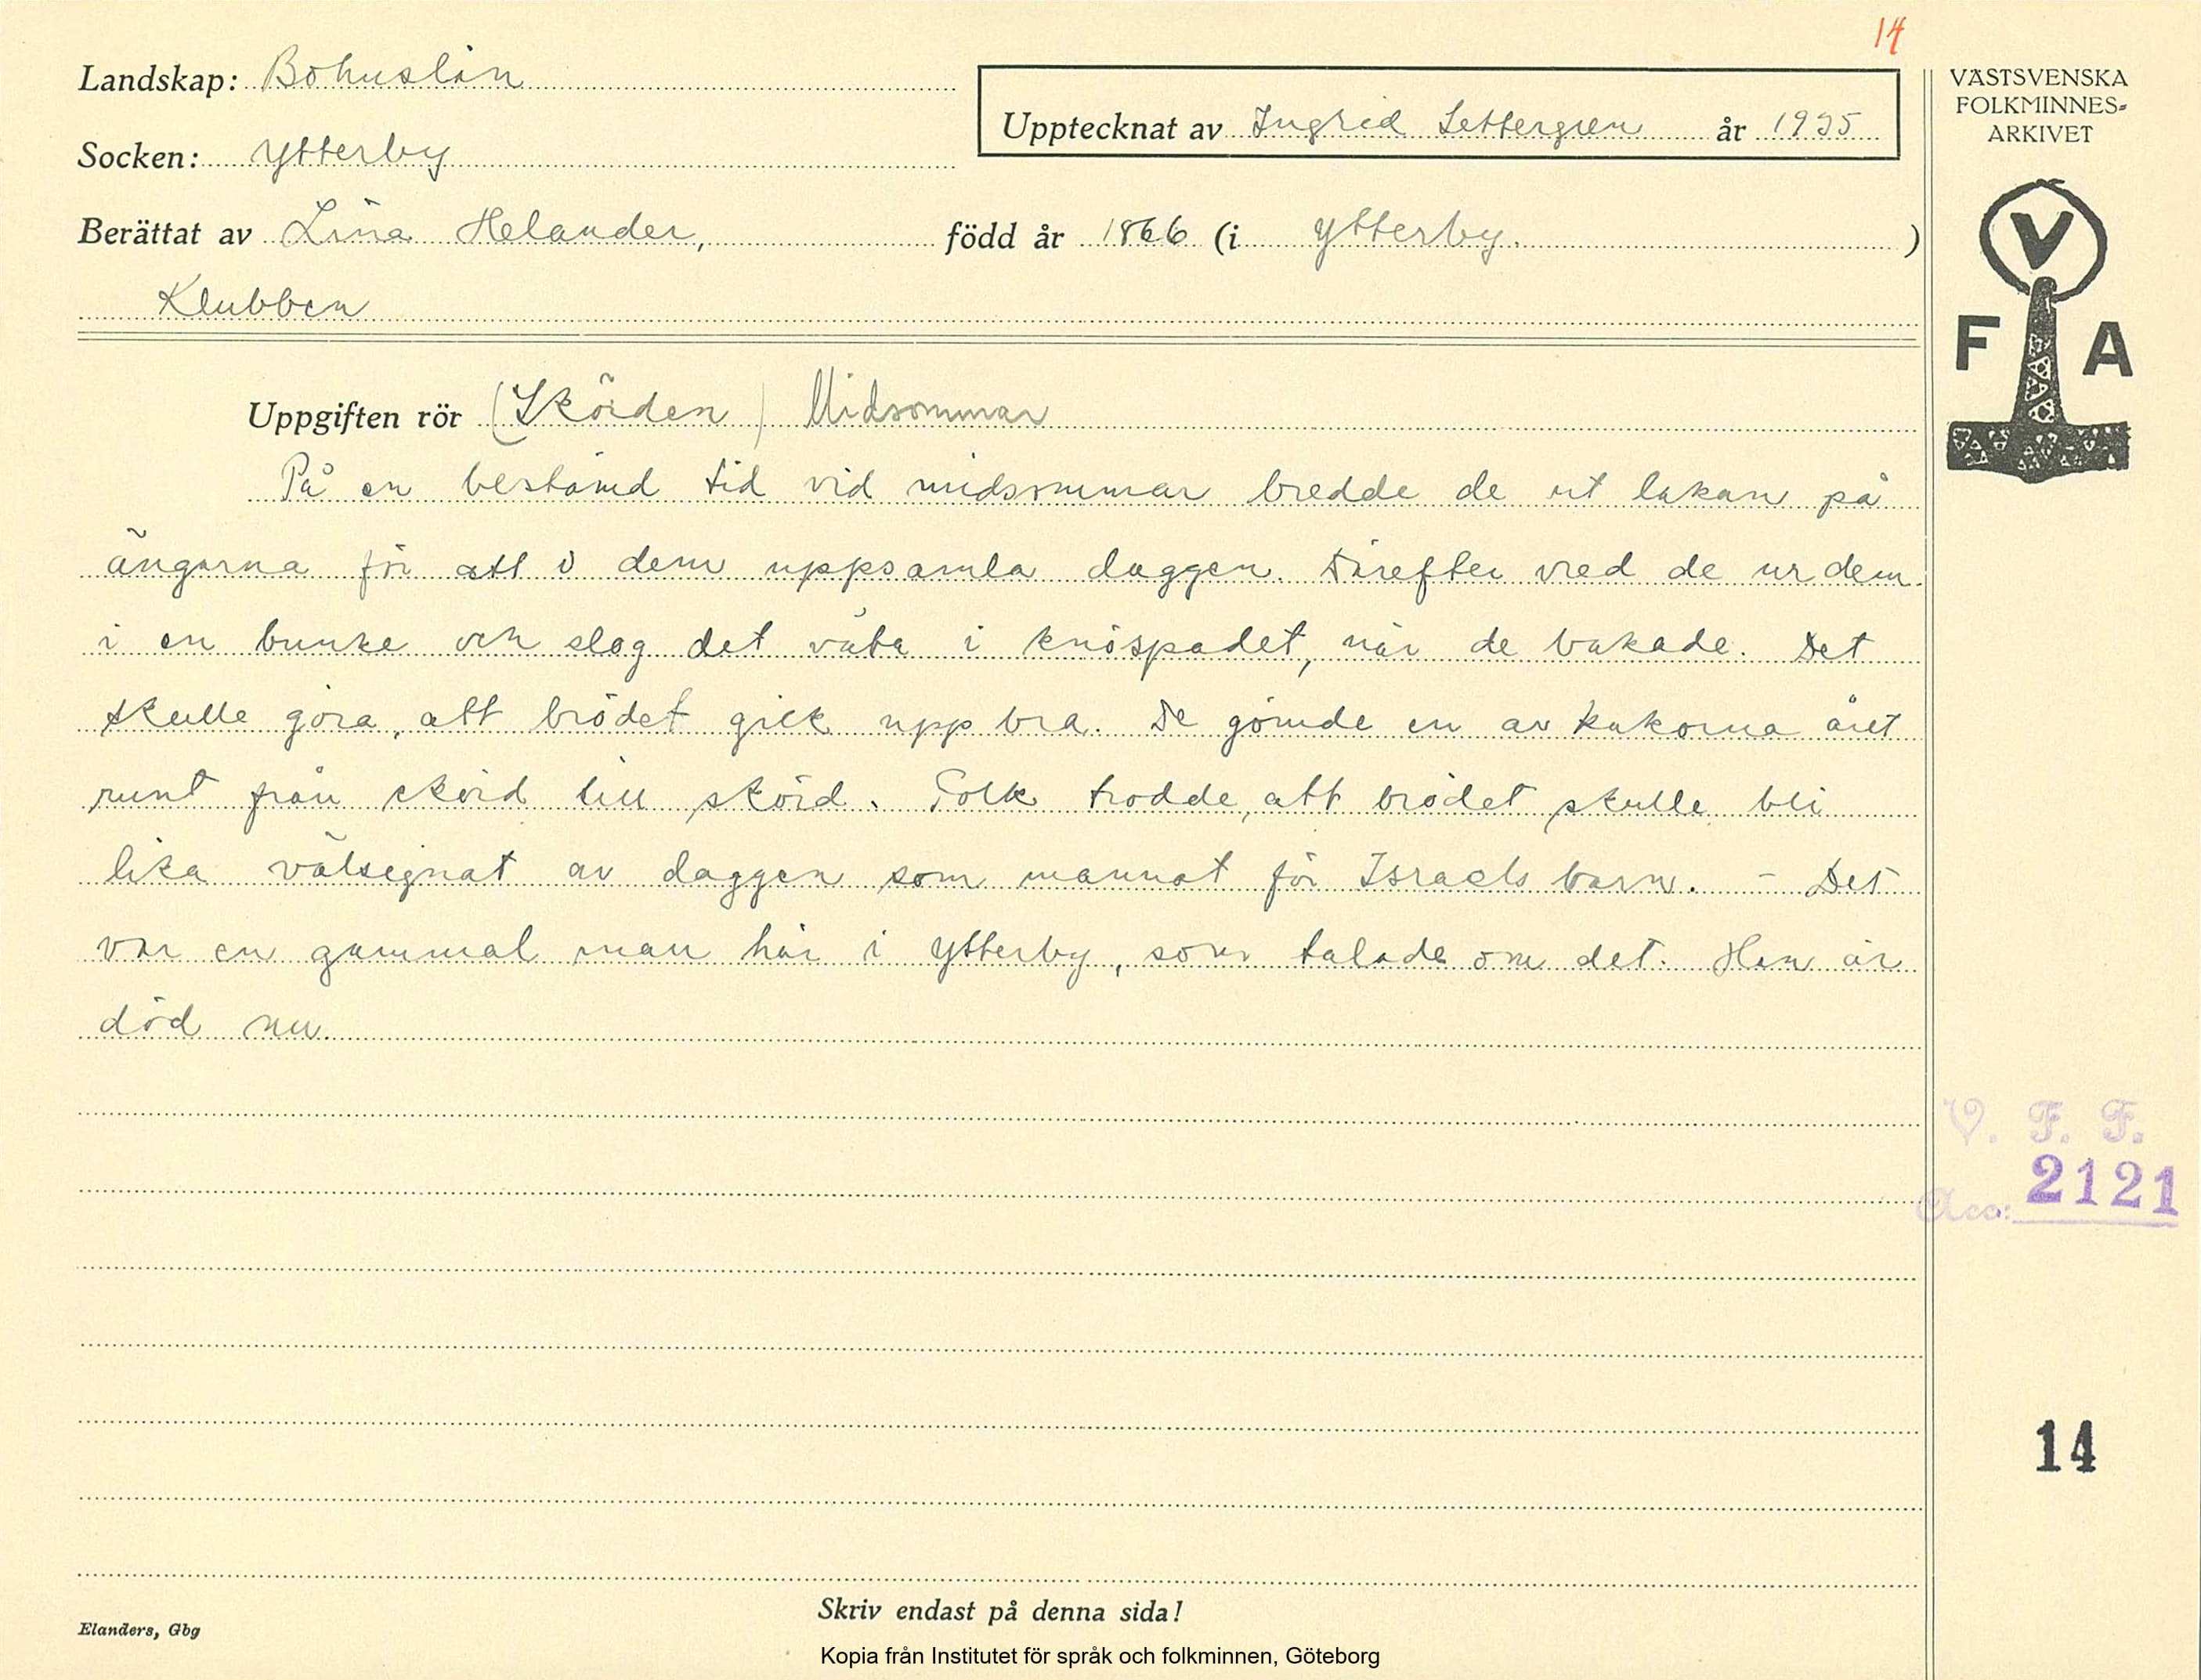 14
Landskap: Bohuslän
Upptecknat av Ingrid Settergren år 1935
VÄSTSVENSKA
FOLKMINNES-
ARKIVET
Socken: Ytterby
Berättat av Lina Helander, född år 1866 (i Ytterby.)
Klubben
V
F A
Uppgiften rör (Skörden) Midsommar
På en bestämd tid vid midsommar bredde de ut lakan på
ängarna för att i dem uppsamla daggen. Därefter vred de ur dem
i en bunke och slog det våta i knöspadet, när de bakade. Det
skulle göra, att brödet gick upp bra. De gömde en av kakorna året
runt från skörd till skörd. Folk trodde, att brödet skulle bli
lika välsignat av daggen som mannat för Israels barn. - Det
var en gammal man här i Ytterby, som talade om det. Han är
död nu.
V. F. F.
Acc: 2121
14
Skriv endast på denna sida!
Elanders, Gbg
Kopia från Institutet för språk och folkminnen, Göteborg